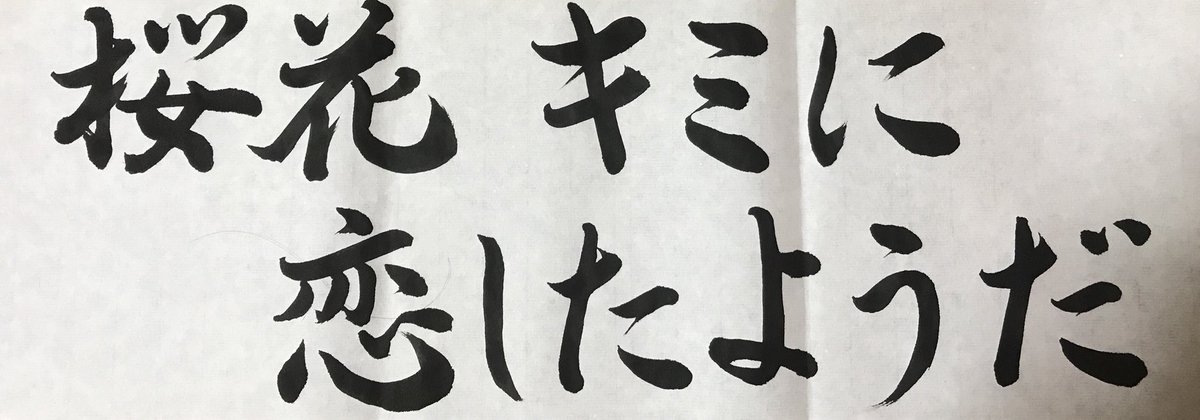 桜花 キミに
恋したようだ